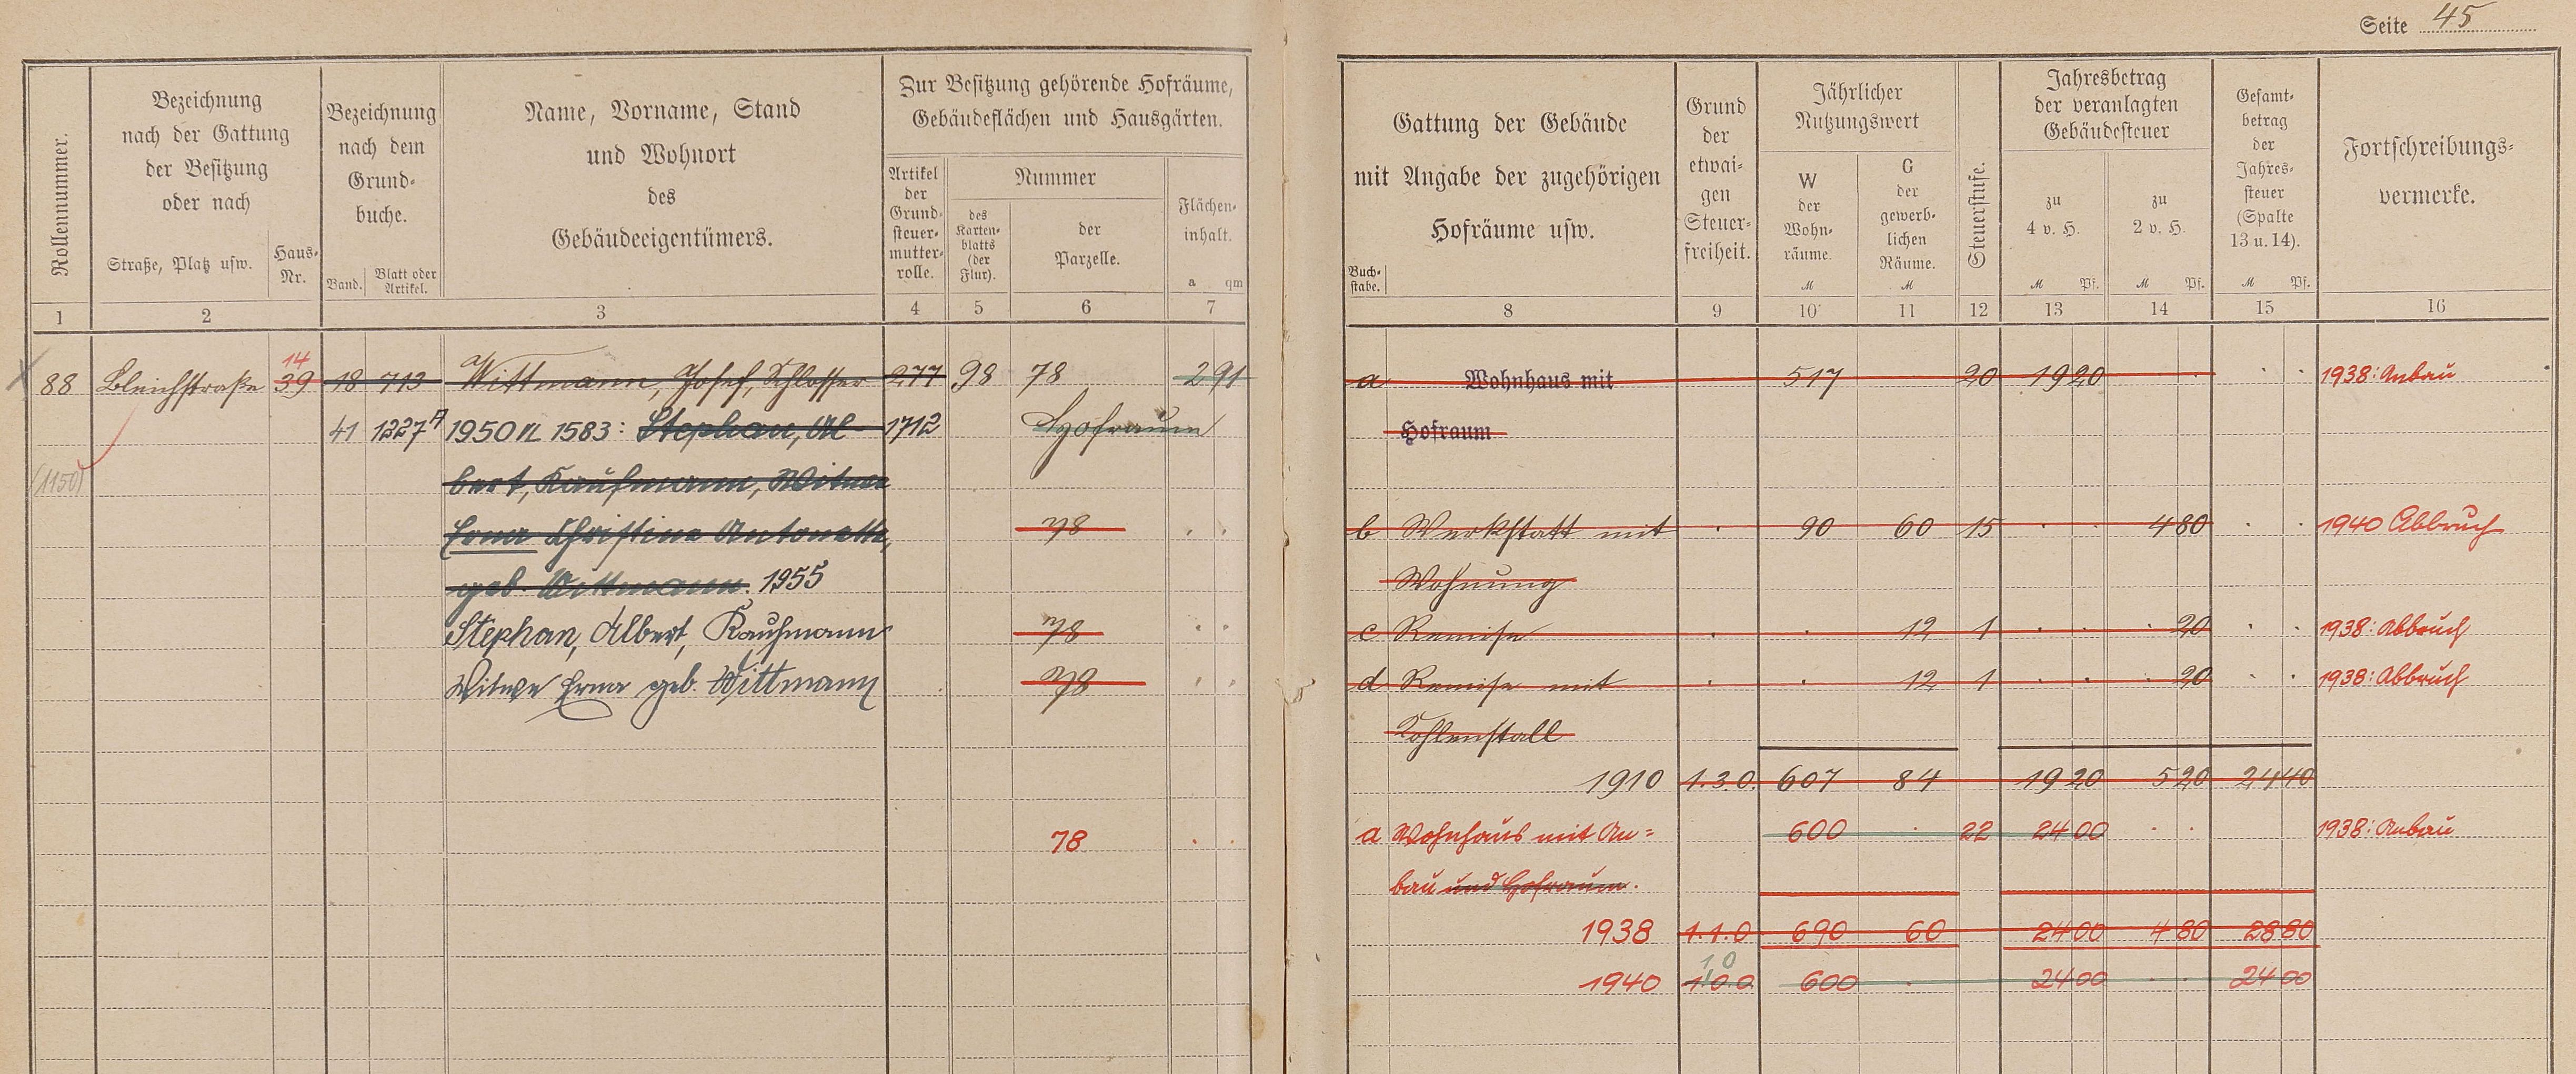 Seite 45
Rollennummer.
Bezeichnung
nach der Gattung
der Besitzung
oder nach
Straße, Platz usw.
Haus-
Nr.
Bezeichnung
nach dem
Grund-
buche.
Band.
Blatt oder
Artikel.
Name, Vorname, Stand
und Wohnort
des
Gebäudeeigentümers.
Zur Besitzung gehörende Hofräume,
Gebäudeflächen und Hausgärten.
Artikel
der
Grund-
steuer-
mutter-
rolle.
Nummer
des
Karten-
blatts
(der
Flur).
der
Parzelle.
Flächen-
inhalt.
a qm
1 2 3 4 5 6 7
14
88 Bleichstraße 39 18 713 Wittmann, Josef, Schlosser 277 98 78 2 91
41 1227A 1950 VL 1583: Stephan, Al- 1712 Hofraum
(1150) bert, Kaufmann, Witwe
Erna Christine Antonette, 78
geb. Wittmann. 1955
Stephan, Albert, Kaufmann 78
Witwe Erna geb. Wittmann 78
78
Gattung der Gebäude
mit Angabe der zugehörigen
Hofräume usw.
Buch-
stabe.
Grund
der
etwai-
gen
Steuer-
freiheit.
Jährlicher
Nutzungswert
W
der
Wohn-
räume.
M
G
der
gewerb-
lichen
Räume.
M
Steuerstufe.
Jahresbetrag
der veranlagten
Gebäudesteuer
zu
4 v. H.
M Pf.
zu
2 v. H.
M Pf.
Gesamt-
betrag
der
Jahres-
steuer
(Spalte
13 u. 14).
M Pf.
Fortschreibungs-
vermerke.
8 9 10 11 12 13 14 15 16
a Wohnhaus mit 517 20 19 20 1938: Anbau
Hofraum
b Werkstatt mit 90 60 15 4 80 1940 Abbruch
Wohnung
c Remise 12 1 20 1938: Abbruch
d Remise mit 12 1 20 1938: Abbruch
Kohlenstall
1910 1.3.0. 607 84 19 20 5 20 24 40
a Wohnhaus mit An= 600 22 24 00 1938: Anbau
bau und Hofraum.
1938 1.1.0 690 60 24 00 4 80 28 80
1 0
1940 1.0.0 600 24 00 24 00